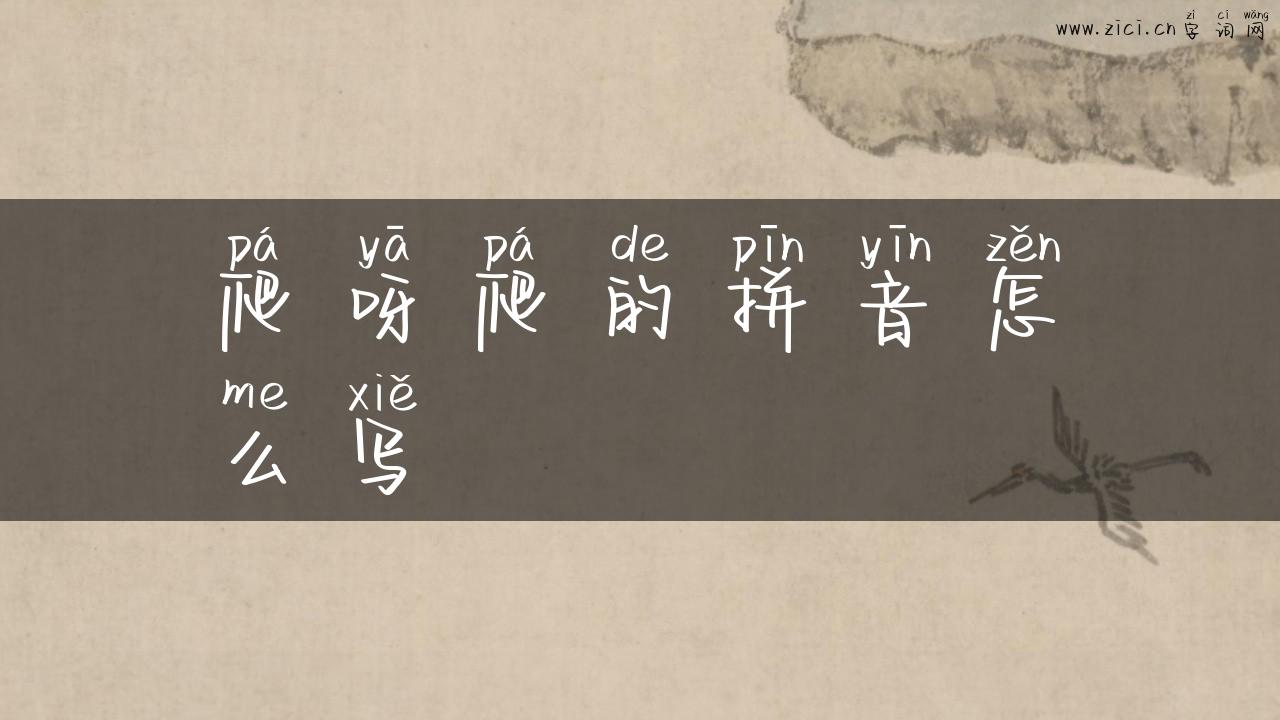 zì cí wǎng
www.zici.cn字词网
pá yā pá de pīn yīn zěn
爬呀爬的拼音怎
me xiě
么写